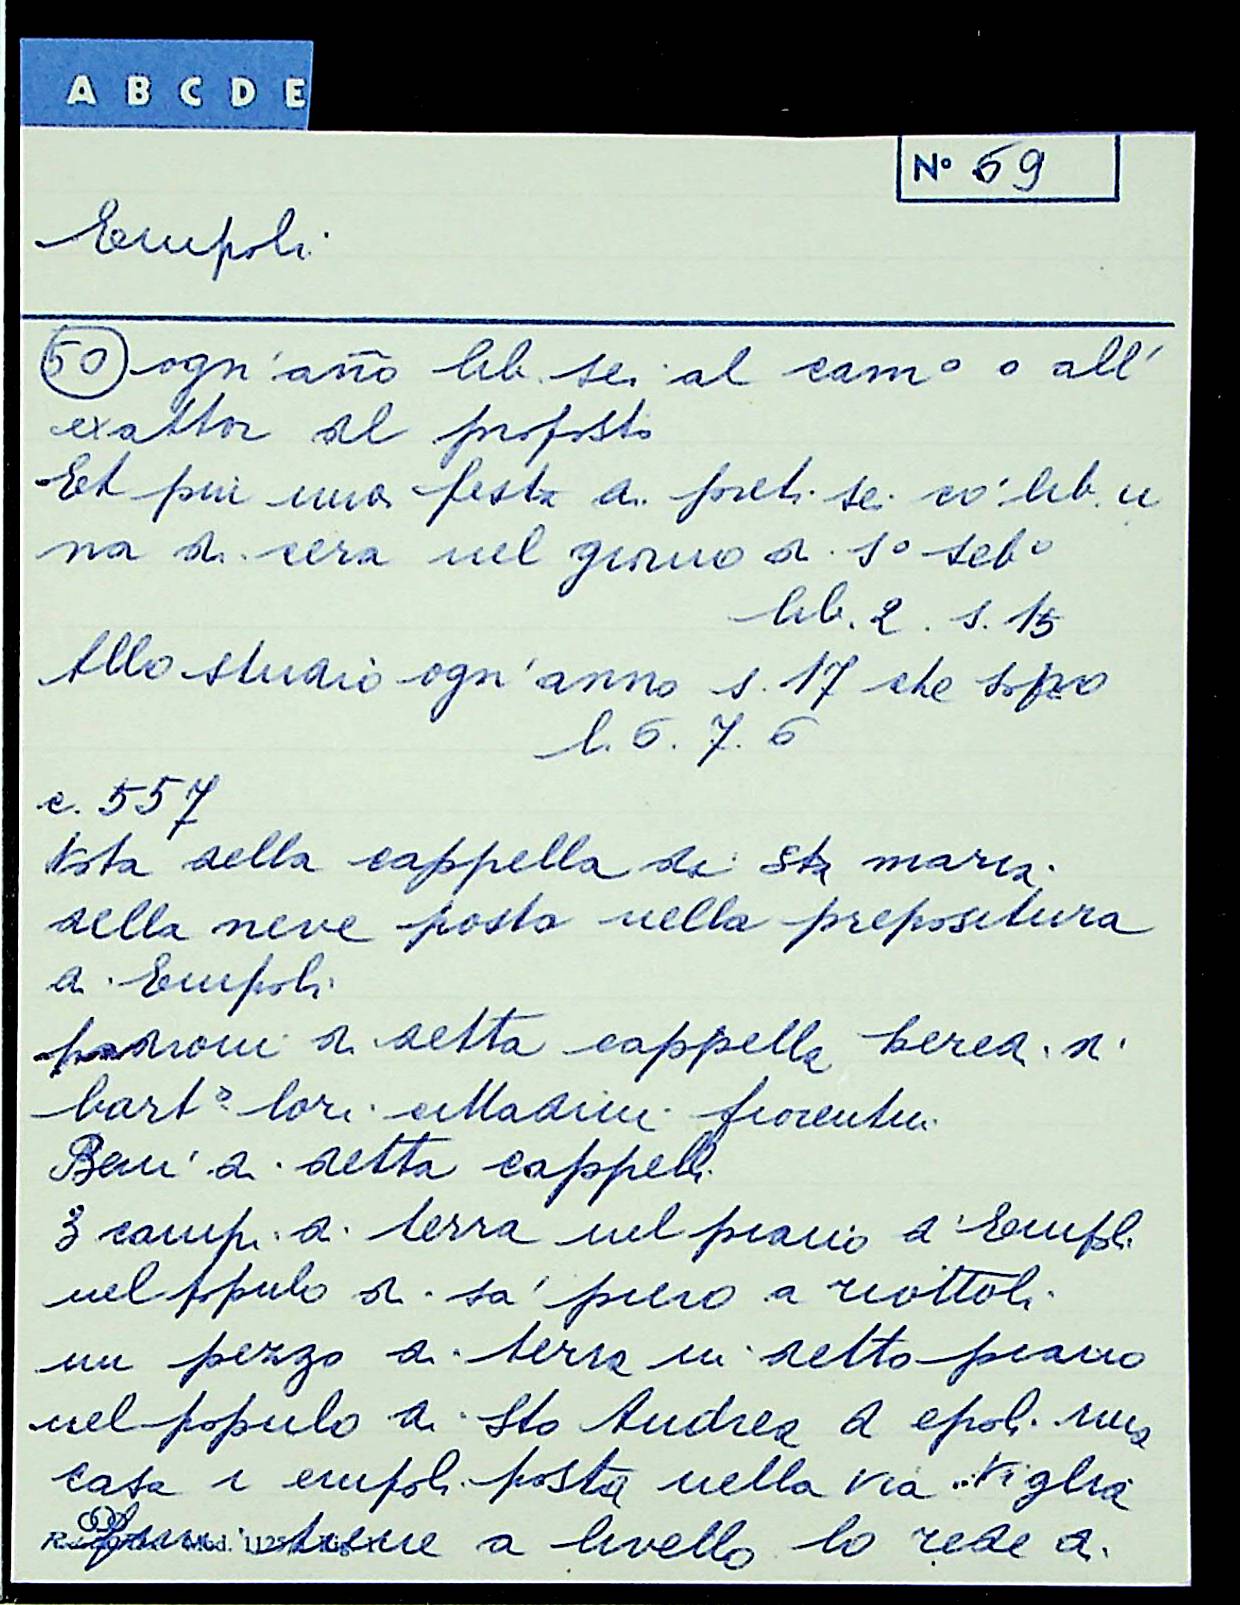 A B C D E
Nº 69
Empoli
50 ogn'año lib. sei al cam° o all'
exattor del proposto
Et più una festa di preti sei cō lib. u
na di cera nel giorno di S° Seb°
lib. 2. s. 15
Allo studio ogn'anno s. 17 che sopo
l. 6. 7. 6
c. 557
Nota della cappella di Sta maria
della neve posta nella prepositura
di Empoli
padroni di detta cappella heredi di
bart° lori cittadini fiorentini
Beni di detta cappell.
3 campi di terra nel piano d'Empoli
nel populo di sa' piero a riottoli
un pezzo di terra in detto piano
nel populo di Sto Andrea d epoli una
casa i empoli posta nella via
tiene a livello lo rede di